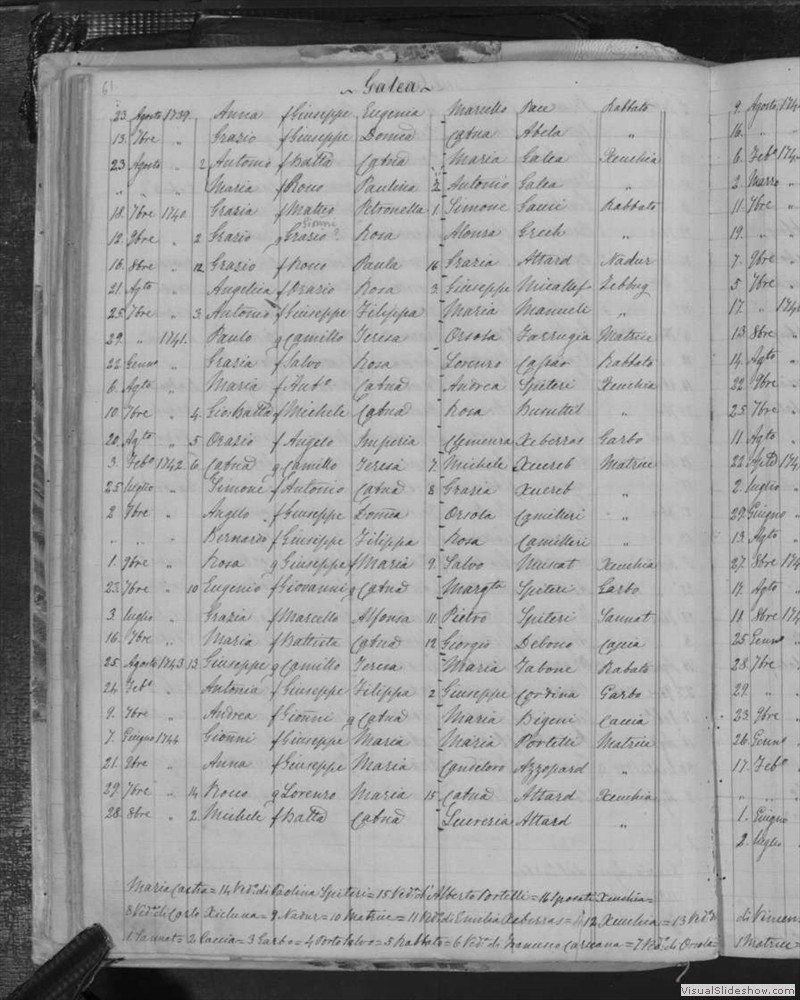 61 ~ Galea ~
23 Agosto 1739. Anna f Giuseppe Eugenia Marcello Pace Rabbato
13. 7bre " Grazio f Giuseppe Domca Catna Abela "
23 Agosto " 2 Antonio f Batta Catna Maria Galea Xeuchia
" " " Maria f Roco Paulina 2 Antonio Galea "
18. 7bre 1740. Grazia f Matteo Petronella 1 Simone Rabbato
12. 9bre " 2 Grazio g Grazio Gionni Rosa Alonsa Grech "
16. 8bre " 12 Grazio f Roco Paula 16 Grazia Attard Nadur
21. Agto " Angelica f Orazio Rosa 3 Giuseppe Micallef Zebbug
25 7bre " 3. Antonio f Giuseppe Filippa Maria Manueli "
29. " 1741. Paulo g Camillo Teresa Orsola Farrugia Matrice
22 Genno " Grazia f Salvo Rosa Lorenzo Rabbato
6. Agto " Maria f Anto Catna Andrea Spiteri Xeuchia
10. 7bre " 4. Gio Batta f Michele Catna Rosa Busuttil "
20. Agto " 5 Orazio f Angelo Imperia Clemenza Xeberras Garbo
3. Febo 1742. 6. Catna g Camillo Teresa 7. Michele Xuereb Matrice
25 luglio " Simone f Antonio Catna 8 Grazia Xuereb "
2 7bre " Angelo f Giuseppe Domca Orsola Camilleri "
" " " Bernardo f Giuseppe Filippa Rosa Camilleri "
1. 9bre " Rosa g Giuseppe f Maria 9. Salvo Muscat Xeuchia
23. 7bre " 10 Eugenio f Giovanni g Catna Margta Spiteri Garbo
3. luglio " Grazia f Marcello Alfonsa 11. Pietro Spiteri Sannat
16. 7bre " Maria f Battista Catna 12 Giorgio Debono Caccia
25. Agosto 1743. 13 Giuseppe g Camillo Teresa Maria Tabone Rabato
24 Febo " Antonia f Giuseppe Filippa 2 Giuseppe Cordina Garbo
9. 7bre " Andrea f Gionni g Catna Maria Bigeni Caccia
7. Giugno 1744 Gionni f Giuseppe Maria Maria Portelli Matrice
21. 9bre " Anna f Giuseppe Maria Candeloro Azzopard "
29. 7bre " 14 Roco g Lorenzo Maria 15 Catna Attard Xeuchia
28. 8bre " 2. Michele f Batta Catna Lucrezia Attard "
Maria = 14 Veda di Paolina Spiteri = 15 Veda d'Alberto Portelli = 16 sposati Xeuchia =
8 Veda di Carlo Xicluna = 9. Nadur = 10 Matrice = 11 Veda di Emilia Xeberras = 12 Xeuchia = 13 Veda di
1 Sannat = 2 Caccia = 3 Garbo = 4 Porto Salvo = 5 Rabbato = 6 Veda di Francesco Caruana = 7 Veda di Orsola =
9. Agosto 174
16. " "
6. Feba 174
2. Marzo "
11. 7bre "
19. " "
7. 9bre "
5 7bre "
17. " 174
13 8bre "
14. Agto "
22. 9bre "
25 7bre "
11. Agto "
22. 174
2. luglio "
29. Giugno "
13 Agto "
27. 8bre 174
17. Agto "
18 8bre 174
25 Genno "
28. 7bre "
29. " "
23. 9bre "
26 Genno "
17. Febo "
" " "
1. Giugno
2. luglio
di Vincen
1 Matrice =
VisualSlideshow.com